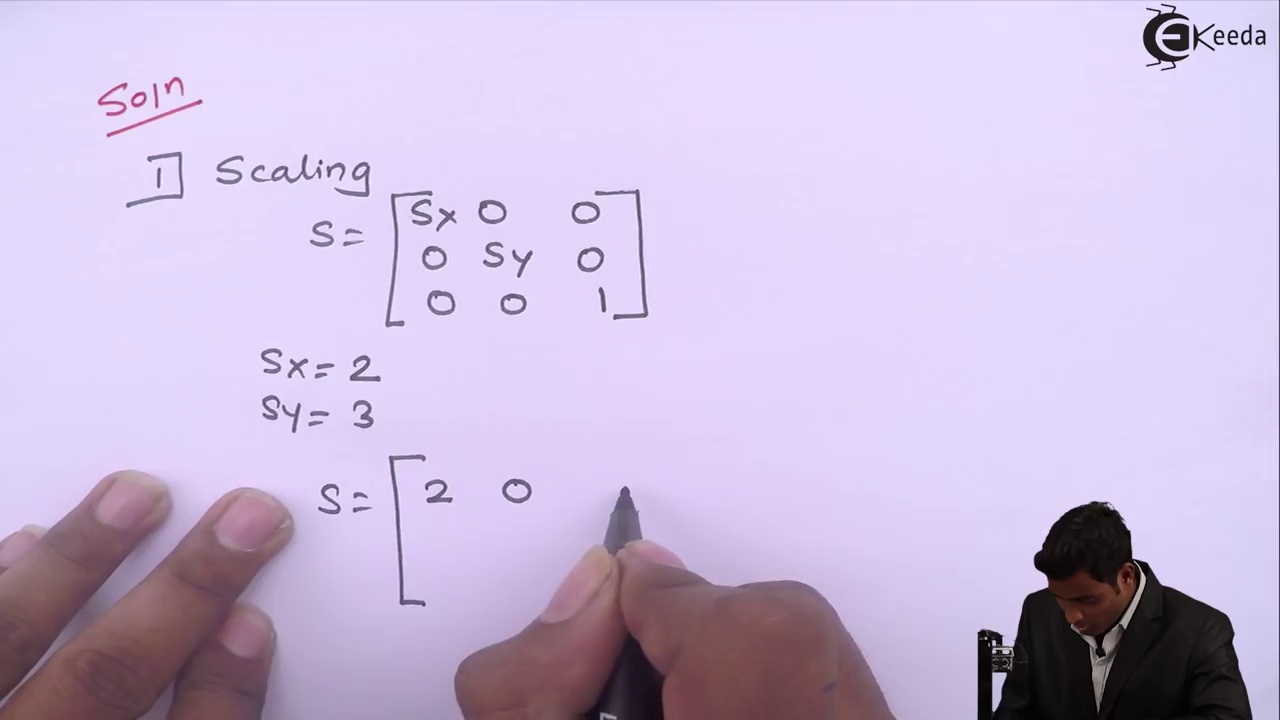 EKeeda
Soln
1] Scaling
S= [Sx 0 0
0 Sy 0
0 0 1]
Sx= 2
Sy= 3
S= [2 0